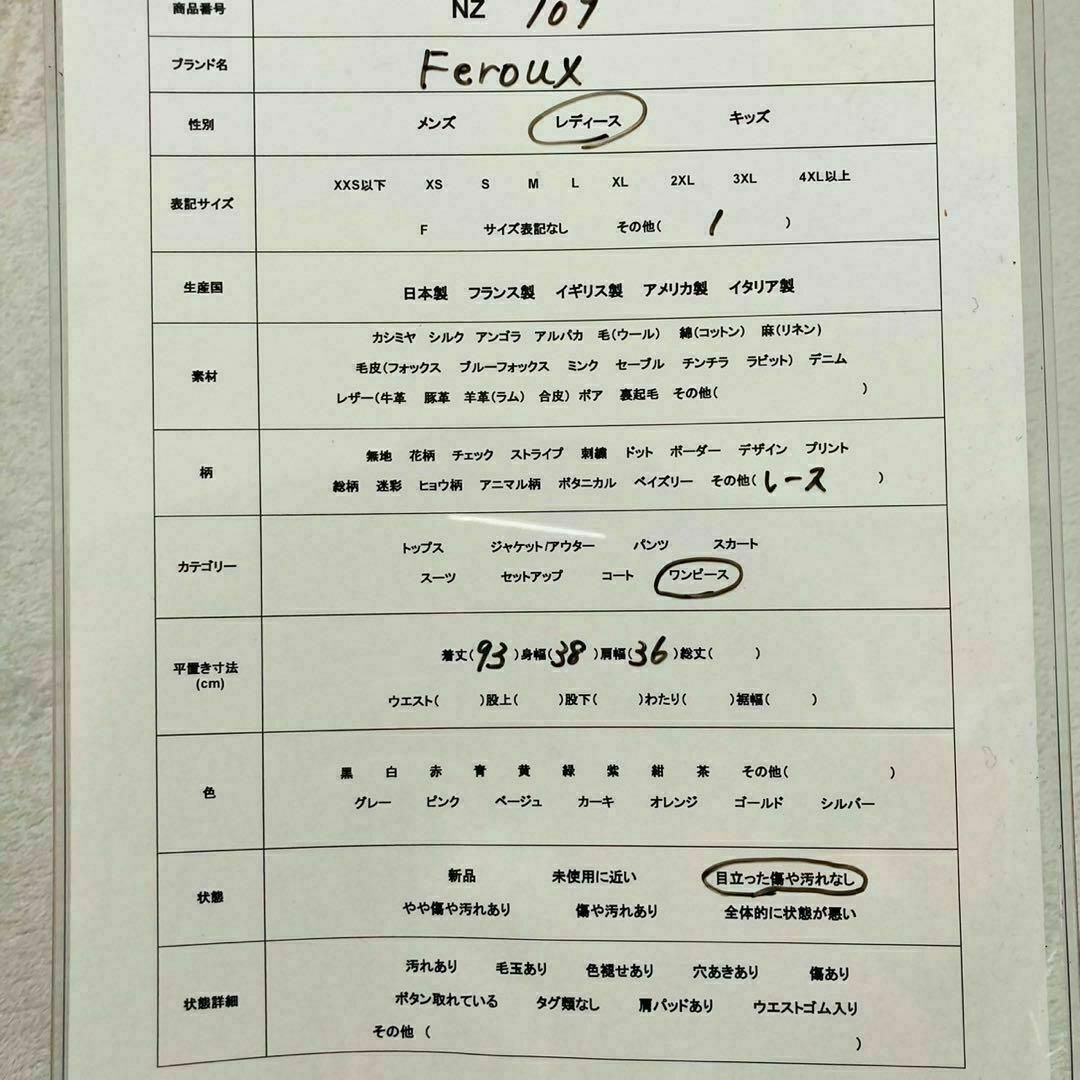 商品番号 NZ 109
ブランド名 Feroux
性別 メンズ レディース キッズ
表記サイズ
XXS以下 XS S M L XL 2XL 3XL 4XL以上
F サイズ表記なし その他( 1 )
生産国 日本製 フランス製 イギリス製 アメリカ製 イタリア製
素材
カシミヤ シルク アンゴラ アルパカ 毛(ウール) 綿(コットン) 麻(リネン)
毛皮(フォックス ブルーフォックス ミンク セーブル チンチラ ラビット) デニム
レザー(牛革 豚革 羊革(ラム) 合皮) ボア 裏起毛 その他( )
柄
無地 花柄 チェック ストライプ 刺繍 ドット ボーダー デザイン プリント
総柄 迷彩 ヒョウ柄 アニマル柄 ボタニカル ペイズリー その他(レース )
カテゴリー
トップス ジャケット/アウター パンツ スカート
スーツ セットアップ コート ワンピース
平置き寸法
(cm)
着丈(93)身幅(38)肩幅(36)総丈( )
ウエスト( )股上( )股下( )わたり( )裾幅( )
色
黒 白 赤 青 黄 緑 紫 紺 茶 その他( )
グレー ピンク ベージュ カーキ オレンジ ゴールド シルバー
状態
新品 未使用に近い 目立った傷や汚れなし
やや傷や汚れあり 傷や汚れあり 全体的に状態が悪い
状態詳細
汚れあり 毛玉あり 色褪せあり 穴あきあり 傷あり
ボタン取れている タグ類なし 肩パッドあり ウエストゴム入り
その他 ( )